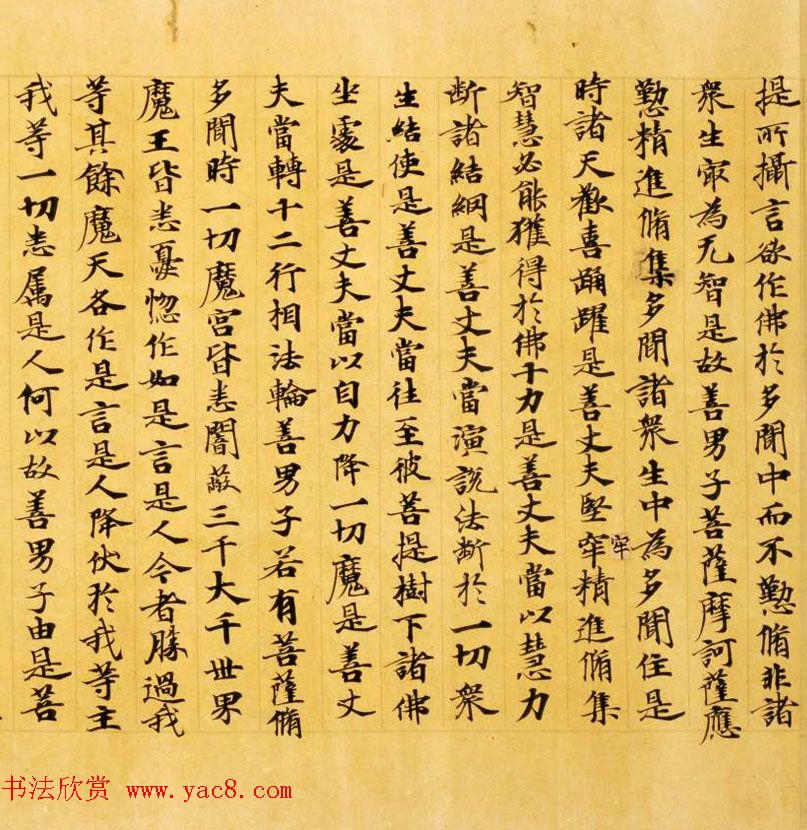 提所攝言欲作佛於多聞中而不懃脩非諸
衆生㝡為无智是故善男子菩薩摩訶薩應
懃精進脩集多聞諸衆生中為多聞住是
時諸天歡喜踊躍是善丈夫堅窂精進脩集
牢
智慧必能獲得於佛十力是善丈夫當以慧力
断諸結網是善丈夫當演說法断於一切衆
生結使是善丈夫當往至彼菩提樹下諸佛
坐處是善丈夫當以自力降一切魔是善丈
夫當轉十二行相法輪善男子若有菩薩脩
多聞時一切魔宫皆悉闇蔽三千大千世界
魔王皆悉憂惚作如是言是人今者勝過我
等其餘魔天各作是言是人降伏於我等主
我等一切悉属是人何以故善男子由是菩
书法欣赏 www.yac8.com